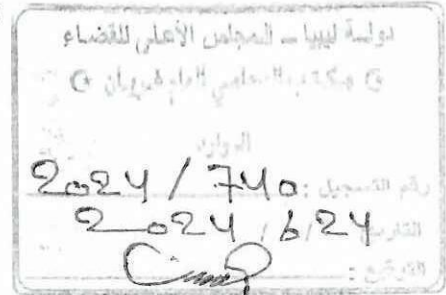 دولة ليبيا – المجلس الأعلى للقضاء
مكتب المحامي العام غريان
الوارد
رقم التسجيل : 740 / 2024
التاريخ 24 / 6 / 2024
التوقيع :